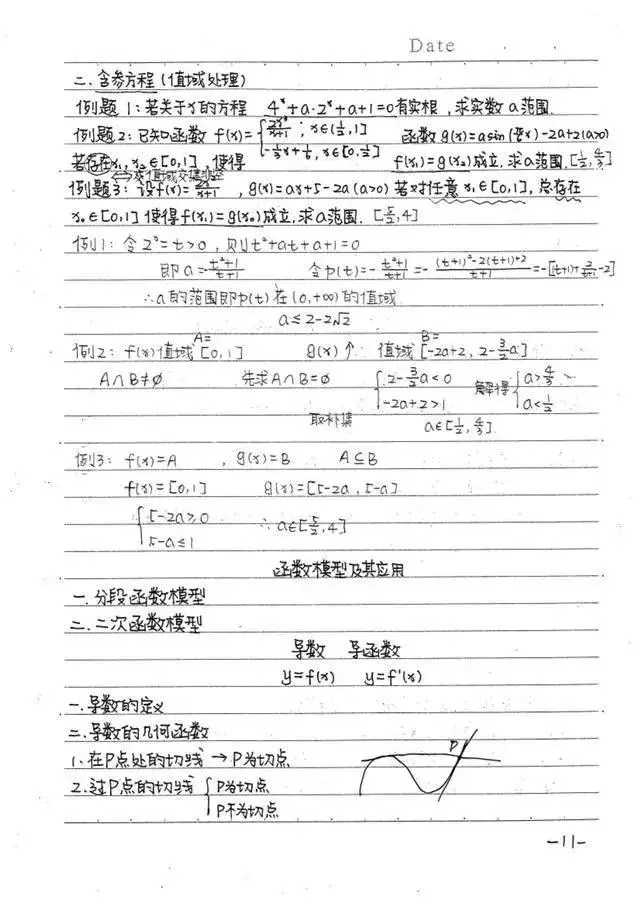 Date
二. 含参方程 (值域处理)
例题1: 若关于x的方程 4^x+a·2^x+a+1=0有实根, 求实数a范围.
例题2: 已知函数 f(x)={ 2x²/(x+1) ; x∈(1/2,1] 函数g(x)=asin(πx/6)-2a+2(a>0)
-1/3x+1/6, x∈[0,1/2]
若存在x₁, x₂∈[0,1], 使得 f(x₁)=g(x₂)成立, 求a范围. [1/2, 4/3]
例题3: 设f(x)= , g(x)=ax+5-2a(a>0) 若对任意x₁∈[0,1], 总存在
x₀∈[0,1] 使得f(x₁)=g(x₀)成立, 求a范围. [5/2, 4]
例1: 令2^x=t>0, 则t²+at+a+1=0
即a=-(t²+1)/(t+1) 令p(t)=-(t²+1)/(t+1)=-((t+1)²-2(t+1)+2)/(t+1)=-[(t+1)+2/(t+1)-2]
∴a的范围即p(t)在(0,+∞)的值域
a≤2-2√2
例2: f(x)值域 A=[0,1] g(x)↑ 值域 B=[-2a+2, 2-3/2a]
A∩B≠∅ 先求A∩B=∅ { 2-3/2a<0 解得 { a>4/3
-2a+2>1 a<1/2
取补集 a∈[1/2, 4/3]
例3: f(x)=A , g(x)=B A⊆B
f(x)=[0,1] g(x)=[5-2a, 5-a]
{ 5-2a≥0 ∴a∈[5/2, 4]
5-a≤1
函数模型及其应用
一. 分段函数模型
二. 二次函数模型
导数 导函数
y=f(x) y=f'(x)
一. 导数的定义
二. 导数的几何函数
1. 在P点处的切线 → P为切点
P
2. 过P点的切线 { P为切点
P不为切点
-11-